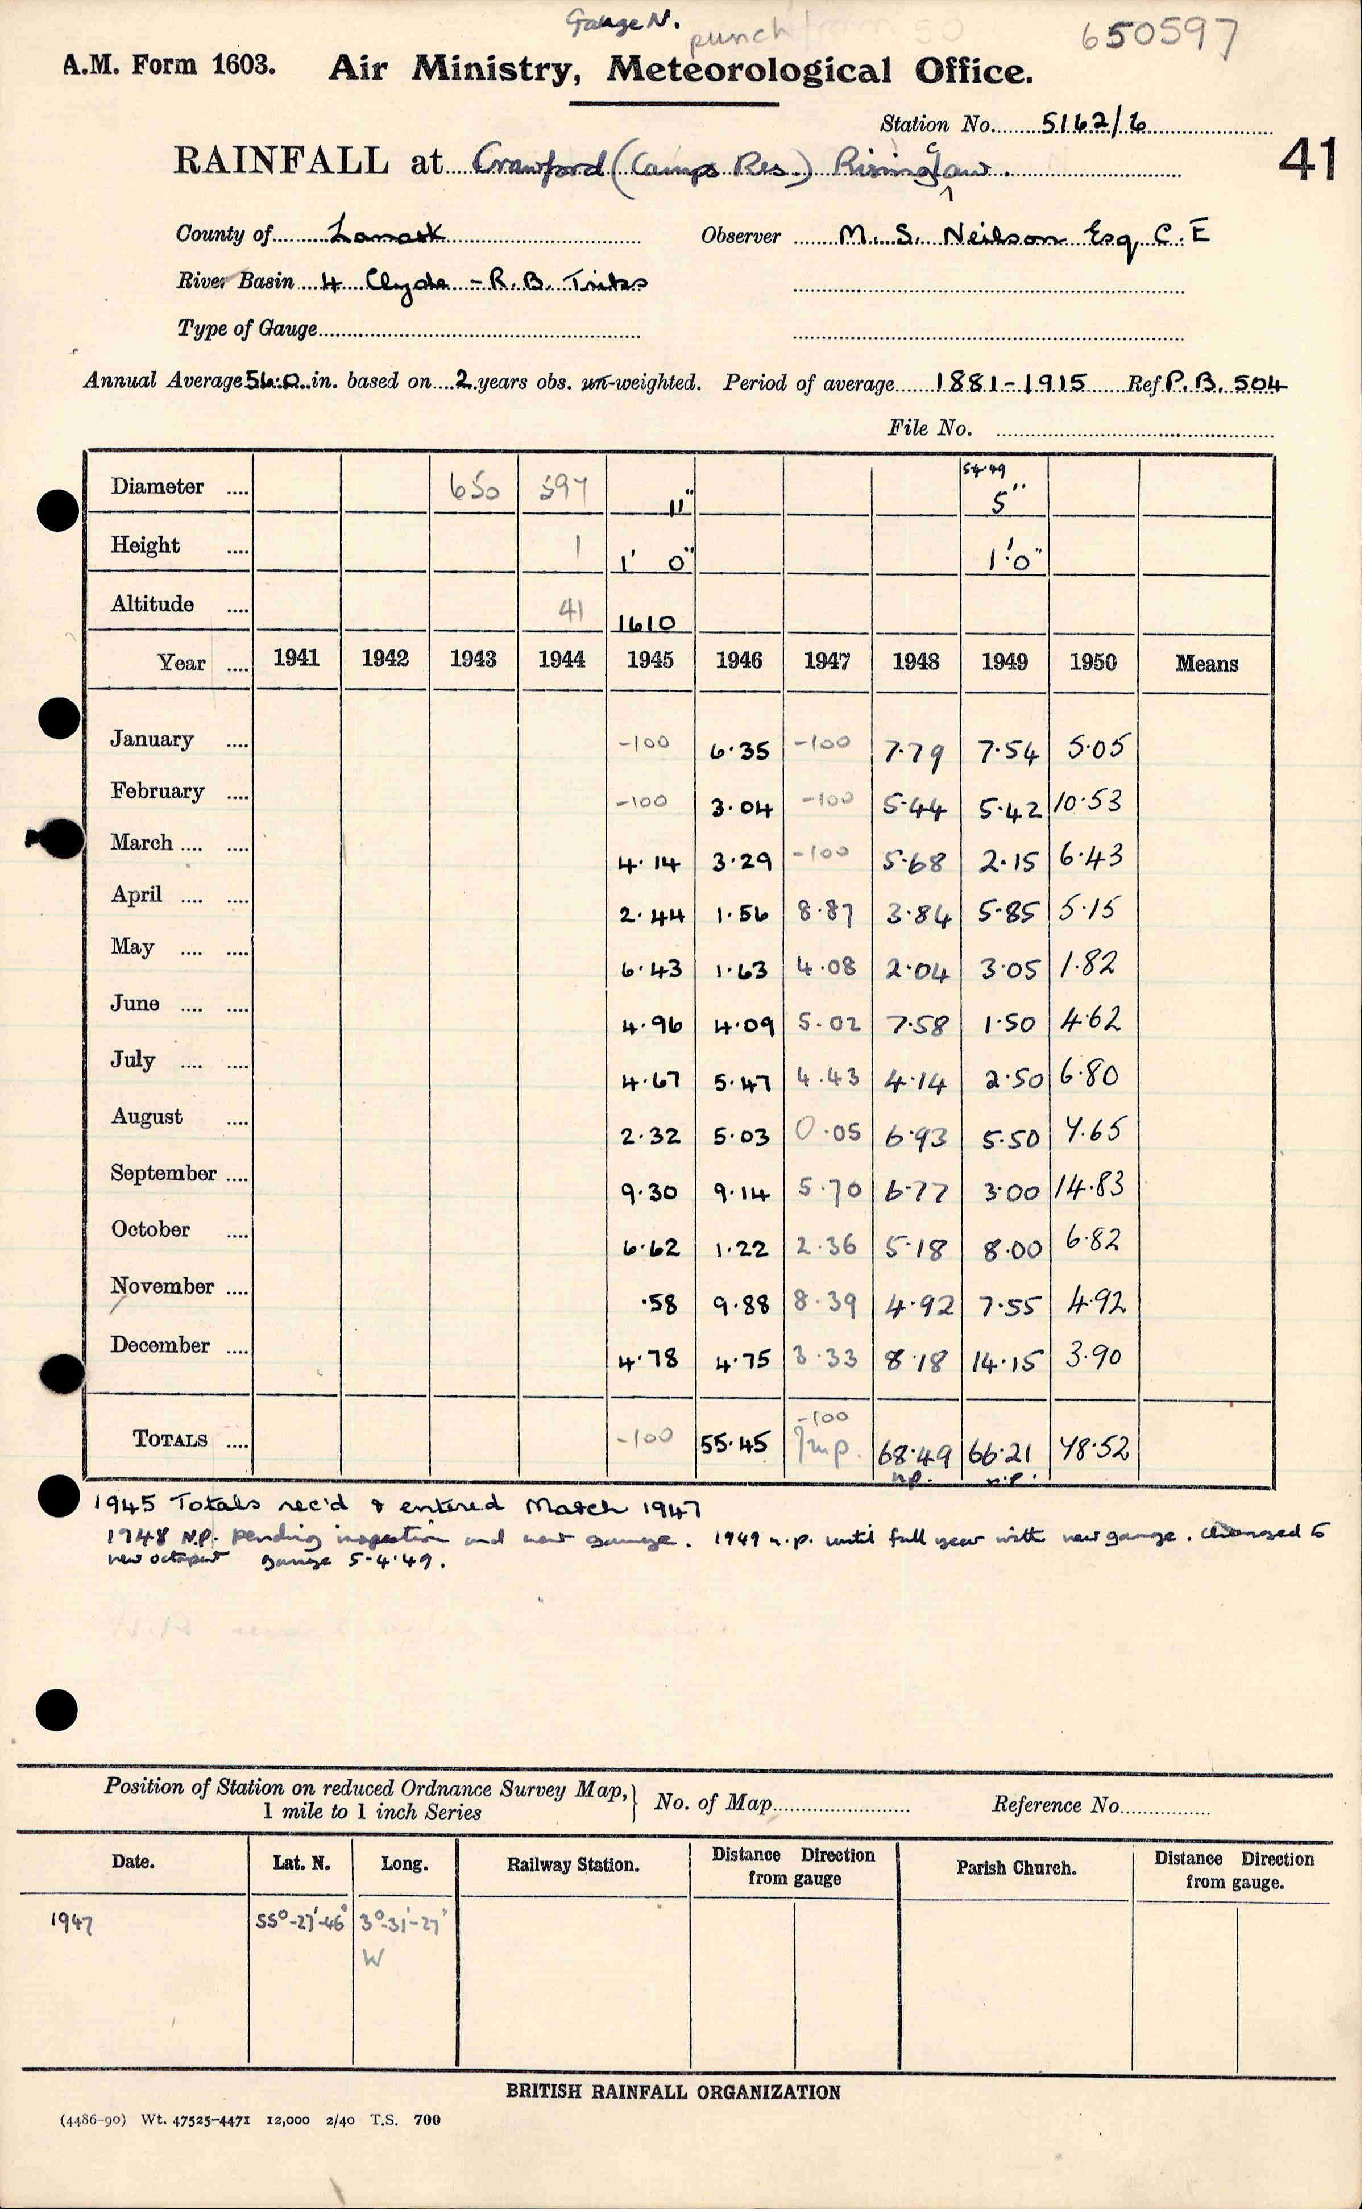 Gauge N. punch form 50 650597
A.M. Form 1603. Air Ministry, Meteorological Office.
Station No. 5162/6
41
RAINFALL at Crawford (Camps Res.) Rising Claw.
County of Lanark Observer M. S. Neilson Esq. C.E
River Basin 4 Clyde - R.B. Tribs
Type of Gauge
Annual Average 56.0 in. based on 2 years obs. un-weighted. Period of average 1881-1915 Ref P.B. 504
File No.
5.4.49
Diameter .... 650 597 11" 5"
Height .... 1 1' 0" 1'.0"
Altitude .... 41 1610
Year .... 1941 1942 1943 1944 1945 1946 1947 1948 1949 1950 Means
January .... -100 6.35 -100 7.79 7.54 5.05
February .... -100 3.04 -100 5.44 5.42 10.53
March .... .... 4.14 3.29 -100 5.68 2.15 6.43
April .... .... 2.44 1.56 8.87 3.84 5.85 5.15
May .... .... 6.43 1.63 4.08 2.04 3.05 1.82
June .... .... 4.96 4.09 5.02 7.58 1.50 4.62
July .... .... 4.67 5.47 4.43 4.14 2.50 6.80
August .... 2.32 5.03 0.05 6.93 5.50 7.65
September .... 9.30 9.14 5.70 6.77 3.00 14.83
October .... 6.62 1.22 2.36 5.18 8.00 6.82
November .... .58 9.88 8.39 4.92 7.55 4.92
December .... 4.78 4.75 3.33 8.18 14.15 3.90
-100
TOTALS .... -100 55.45 Imp. 68.49 66.21 78.52
n.p. n.p.
1945 Totals rec'd & entered March 1947
1948 N.P. pending inspection and new gauge. 1949 n.p. until full year with new gauge. Changed to
new octapent gauge 5.4.49.
Position of Station on reduced Ordnance Survey Map,} No. of Map Reference No.
1 mile to 1 inch Series
Date. Lat. N. Long. Railway Station. Distance Direction from gauge Parish Church. Distance Direction from gauge.
1947 55°-27'-46" 3°-31'-27"
W
BRITISH RAINFALL ORGANIZATION
(4486-90) Wt. 47525-4471 12,000 2/40 T.S. 700